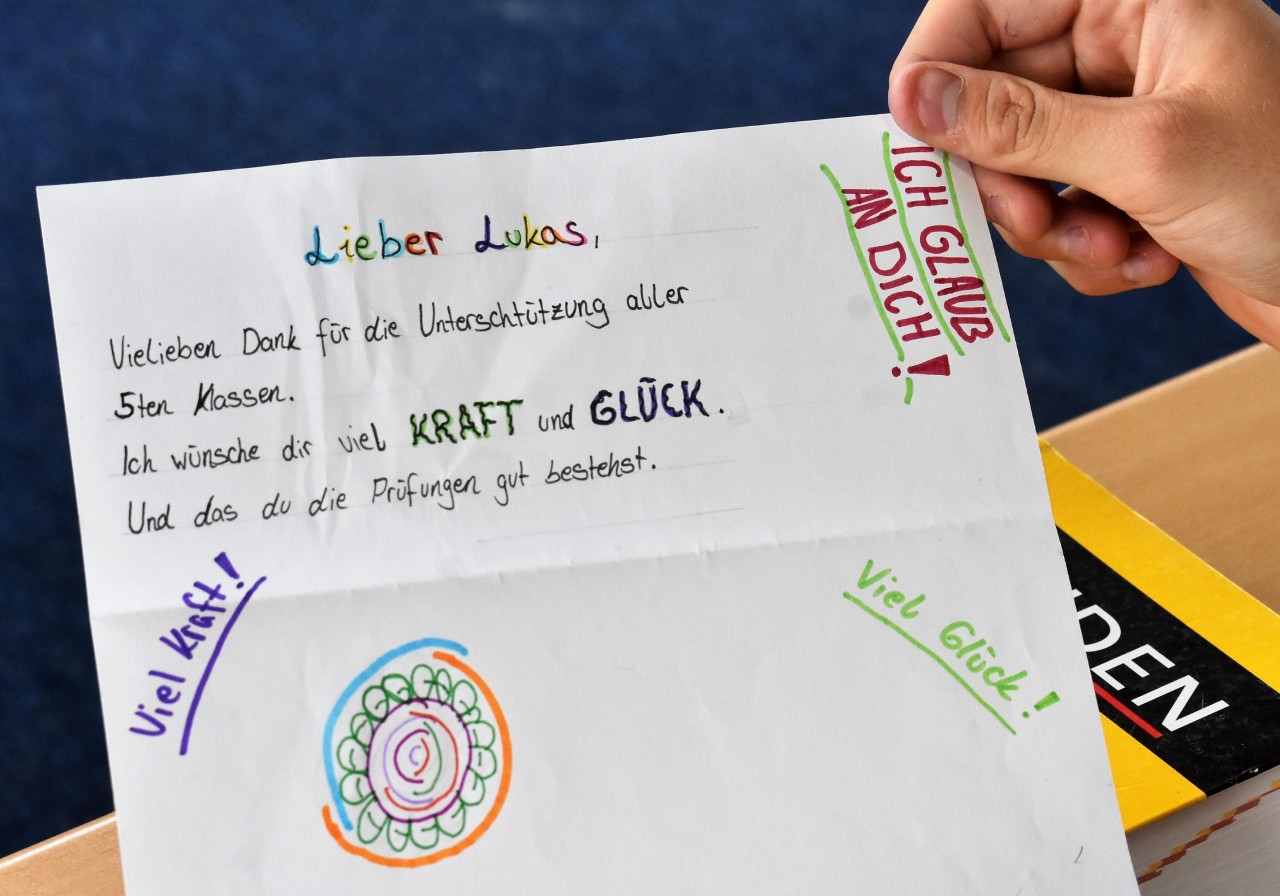 Lieber Lukas,
Vielieben Dank für die Unterschtützung aller
5ten Klassen.
Ich wünsche dir viel KRAFT und GLÜCK.
Und das du die Prüfungen gut bestehst.
ICH GLAUB
AN DICH!
Viel Kraft!
Viel Glück!